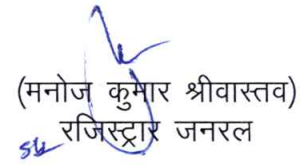 (मनोज कुमार श्रीवास्तव)
रजिस्ट्रार जनरल